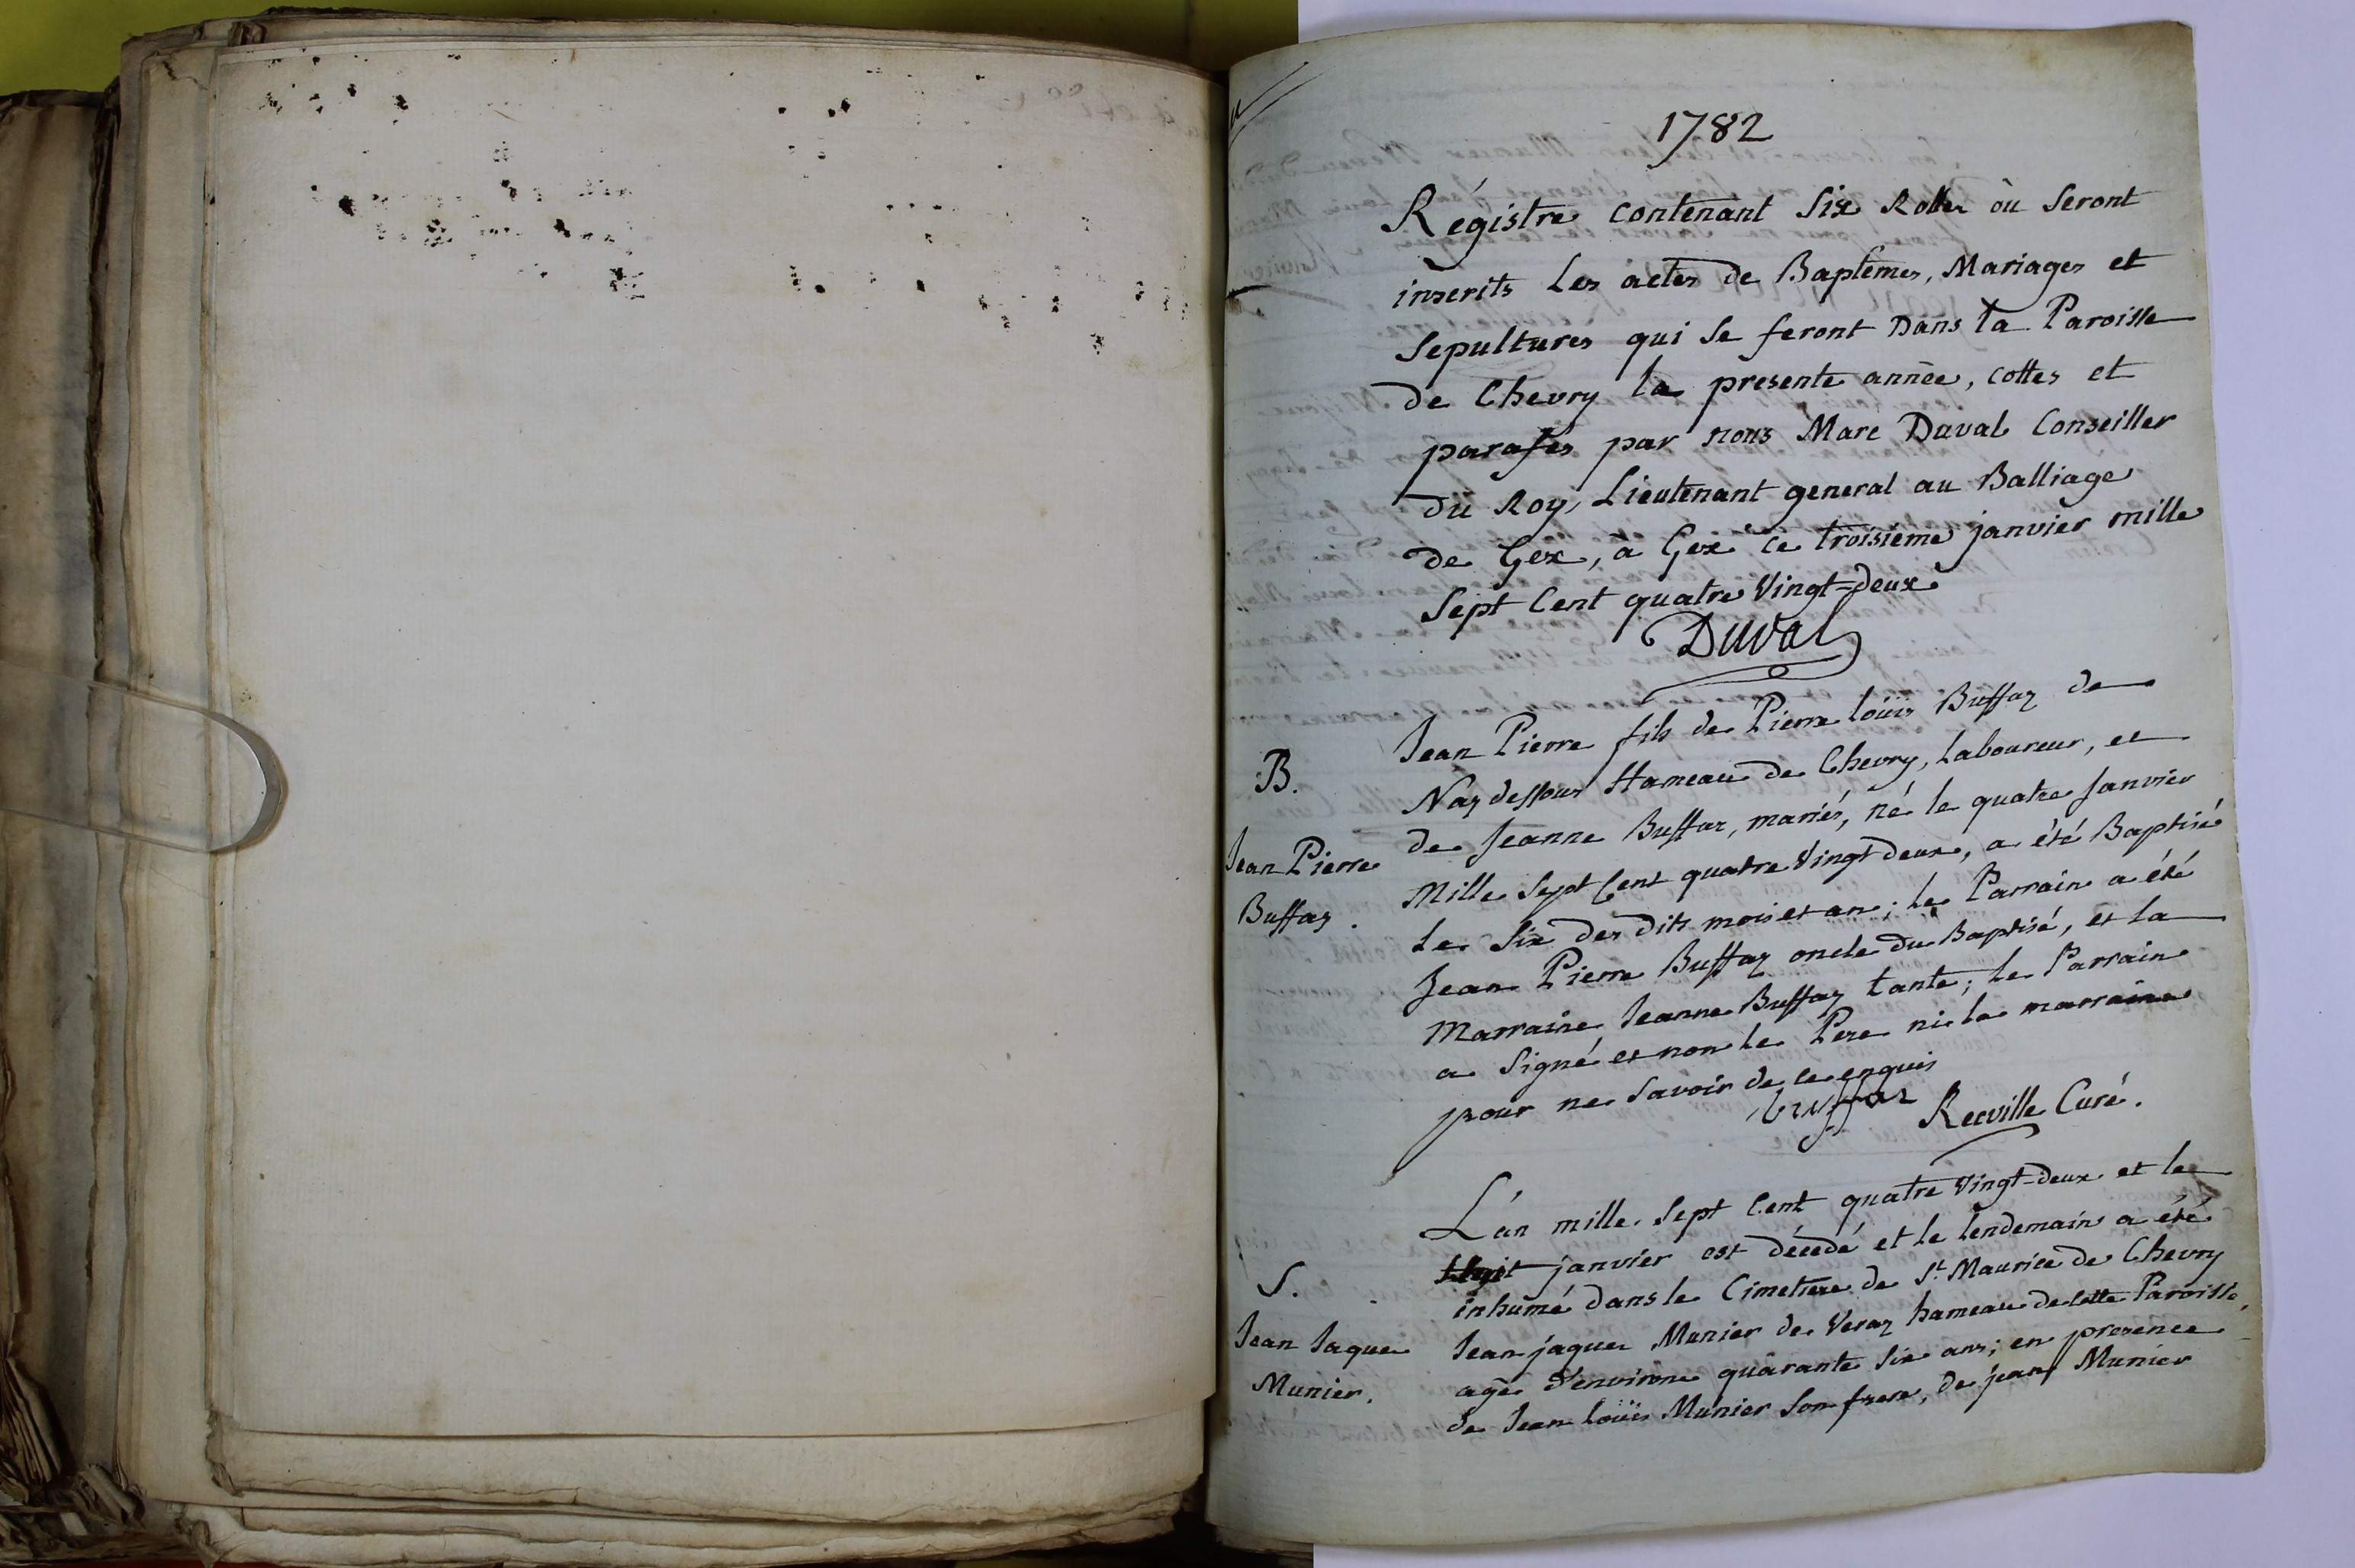 1782
Régistre contenant Six Rolles où Seront
inscrits Les actes de Baptêmes, Mariages et
Sepultures qui Se feront Dans la Paroisse
de Chevry la presente année, cottes et
parafés par nous Marc Duval Conseiller
du Roy, Lieutenant general au Balliage
de Gex, à Gex ce troisiéme janvier mille
Sept Cent quatre Vingt-deux
Duval
B.
Jean Pierre
Buffaz.
Jean Pierre fils de Pierre loüis Buffaz de
Naz dessous Hameau de Chevry, Laboureur, et
de Jeanne Buffaz, mariés, né le quatre Janvier
Mille Sept Cent quatre Vingt deux, a été Baptisé
Le Six des dits mois et an; le Parrain a été
Jean Pierre Buffaz oncle du Baptisé, et la
Marraine Jeanne Buffaz tante; le Parrain
a Signé et non le Pere ni la marraine
pour ne Savoir de ce enquis
buffaz Recville Curé.
S.
Jean Jaques
Munier.
L'an mille Sept Cent quatre Vingt-deux et le
huit janvier est décedé et le lendemain a été
inhumé dans le Cimetiere de St Maurice de Chevry
Jean jaques Munier de Veraz hameau de cette Paroisse,
agé d'environ quarante Six ans; en presence
de Jean Loüis Munier Son frere, de jean Munier